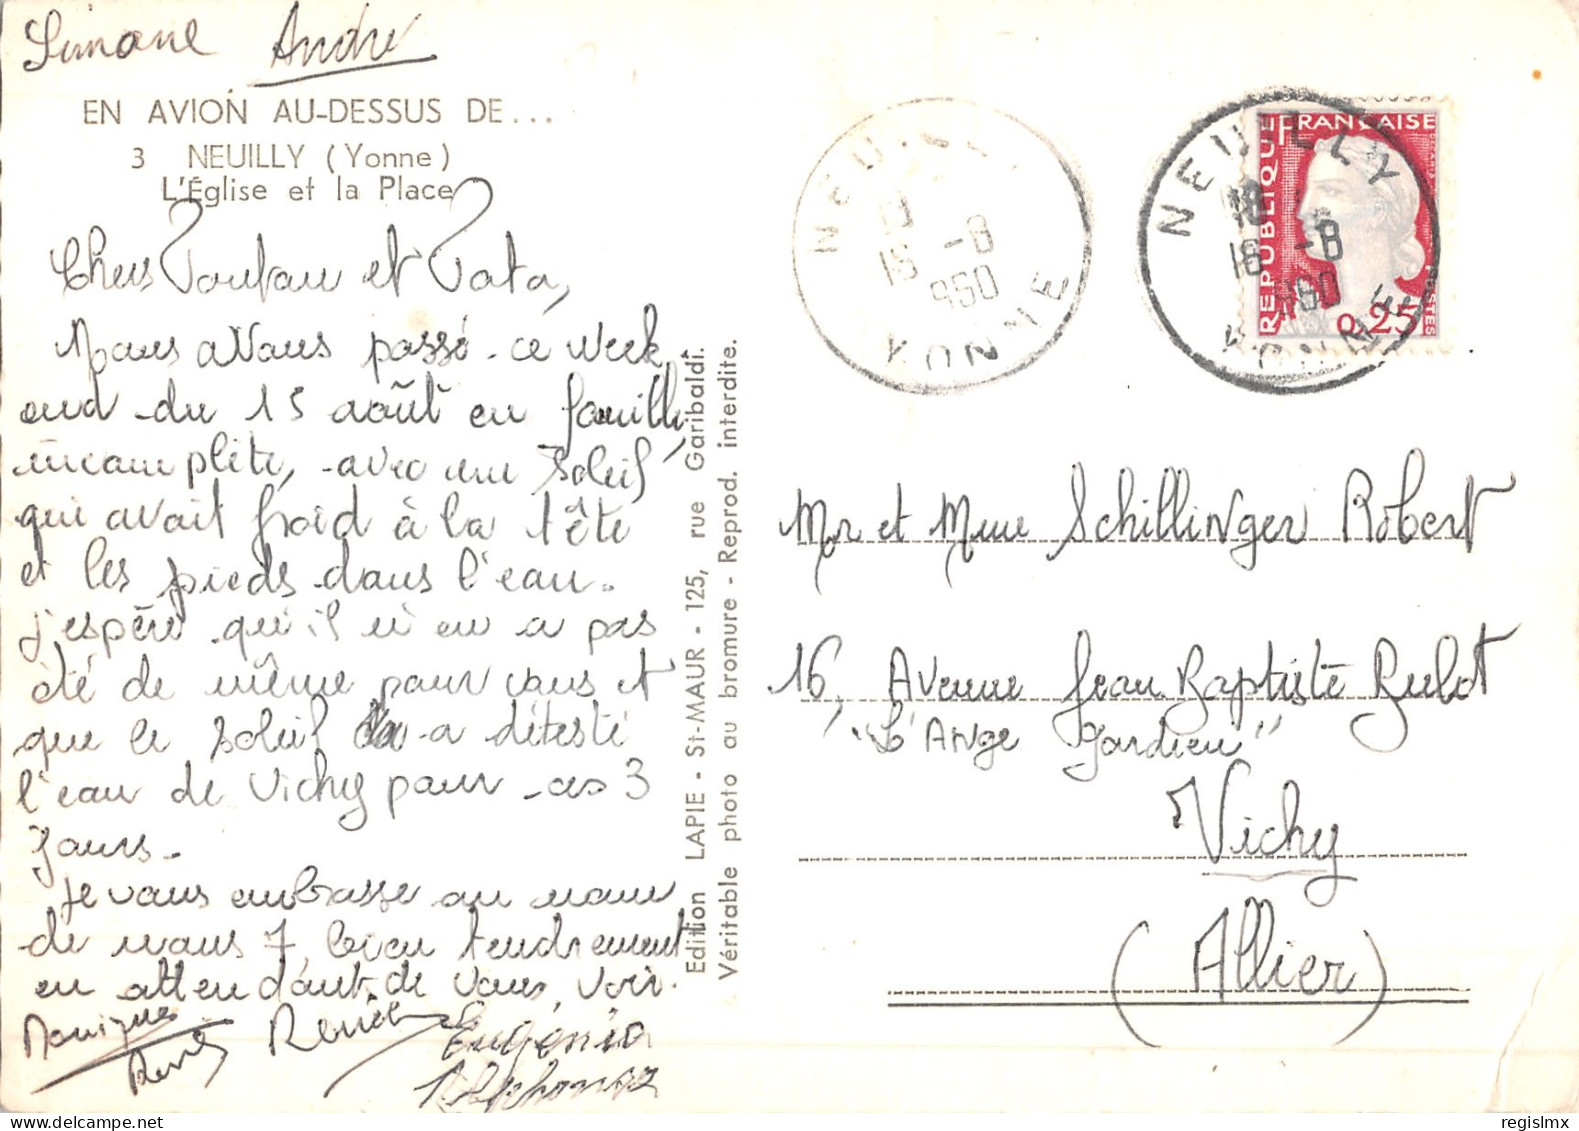 Simone André
EN AVION AU-DESSUS DE...
3 NEUILLY (Yonne)
L'Église et la Place
Chers Tonton et Tata,
Nous avons passé ce week
end du 15 août en famille
incomplète, avec un soleil
qui avait froid à la tête
et les pieds dans l'eau.
j'espère qu'il n'en a pas
été de même pour vous et
que le soleil a détesté
l'eau de Vichy pour ces 3
jours.
Je vous embrasse au nom
de nous 7 bien tendrement
en attendant de vous voir.
Monique
René Renée
Eugénia
Alphonse
Edition LAPIE - St-MAUR - 125, rue Garibaldi.
Véritable photo au bromure - Reprod. interdite.
NEUILLY
18
16 -8
1960
YONNE
NEUILLY
18
16 -8
1960
YONNE
RÉPUBLIQUE FRANÇAISE
0,25
POSTES
Mr et Mme Schillinger Robert
16, Avenue Jean Baptiste Bulot
"L'Ange Gardien"
Vichy
(Allier)
regislmx